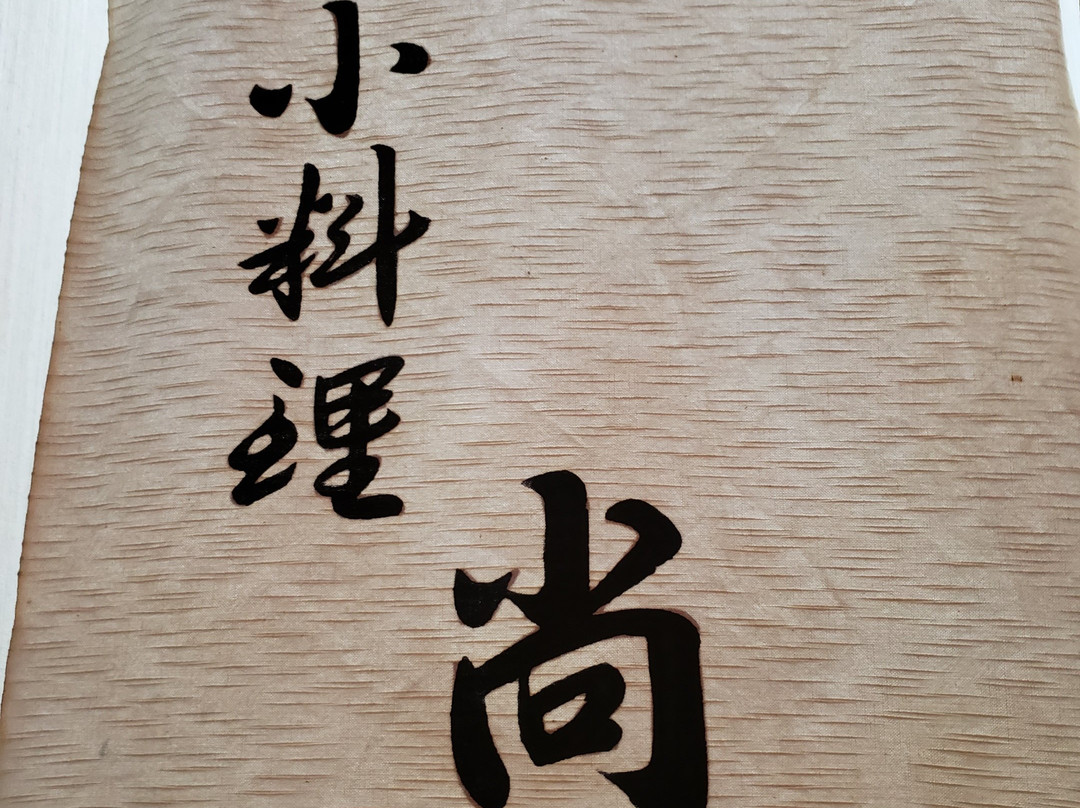 小料理
尚